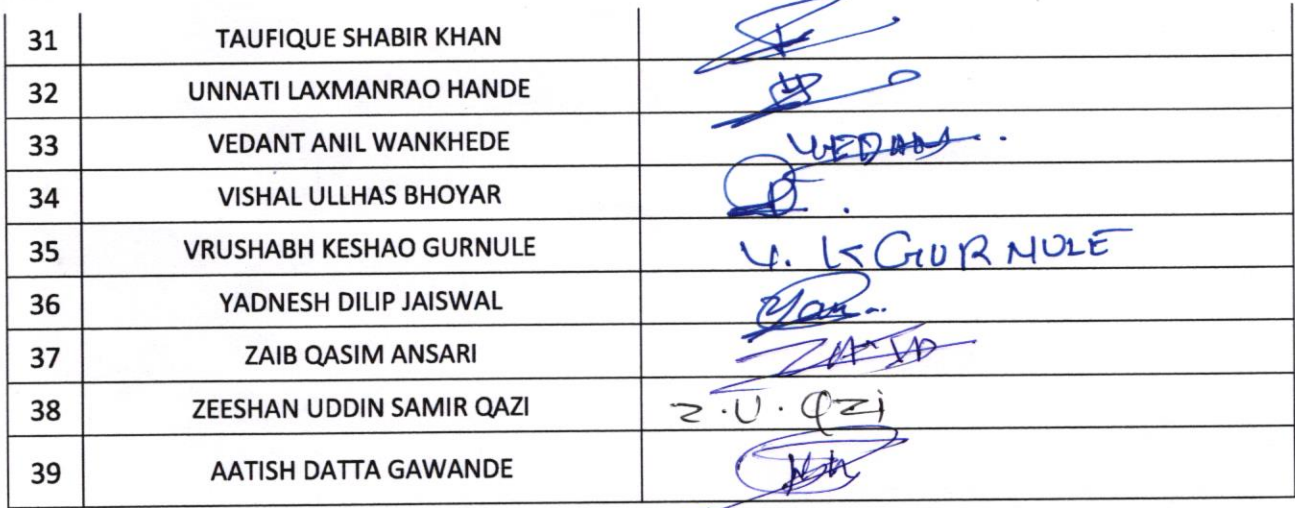 31 TAUFIQUE SHABIR KHAN
32 UNNATI LAXMANRAO HANDE
33 VEDANT ANIL WANKHEDE
34 VISHAL ULLHAS BHOYAR
35 VRUSHABH KESHAO GURNULE V. K GURNULE
36 YADNESH DILIP JAISWAL
37 ZAIB QASIM ANSARI
38 ZEESHAN UDDIN SAMIR QAZI Z.U.QZi
39 AATISH DATTA GAWANDE